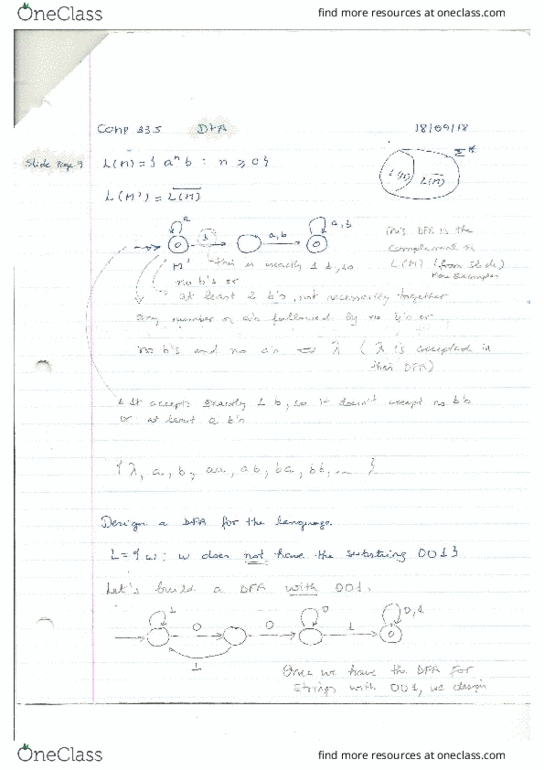 OneClass
find more resources at oneclass.com
COMP 335 DFA 18/09/18
Slide Page 9
L(M) = { aⁿ b : n ≥ 0 }
Σ*
L(M) L(M)̅
L(M') = L(M)̅
a b a,b a,b
This DFA is the
complement of
L(M) (from slide)
M' this is exactly 1 b, so
no b's or
at least 2 b's, not necessarily together
any number of a's followed by no b's or
no b's and no a's λ (λ is accepted in
this DFA)
It accepts exactly 1 b, so it doesn't accept no b's
or at least 2 b's
{ λ, a, b, aa, ab, ba, bb, ... }
Design a DFA for the language.
L = { w : w does not have the substring 001 }
Let's build a DFA with 001.
1 0 0 0 1 0,1
1
Once we have the DFA for
strings with 001, we design
OneClass
find more resources at oneclass.com